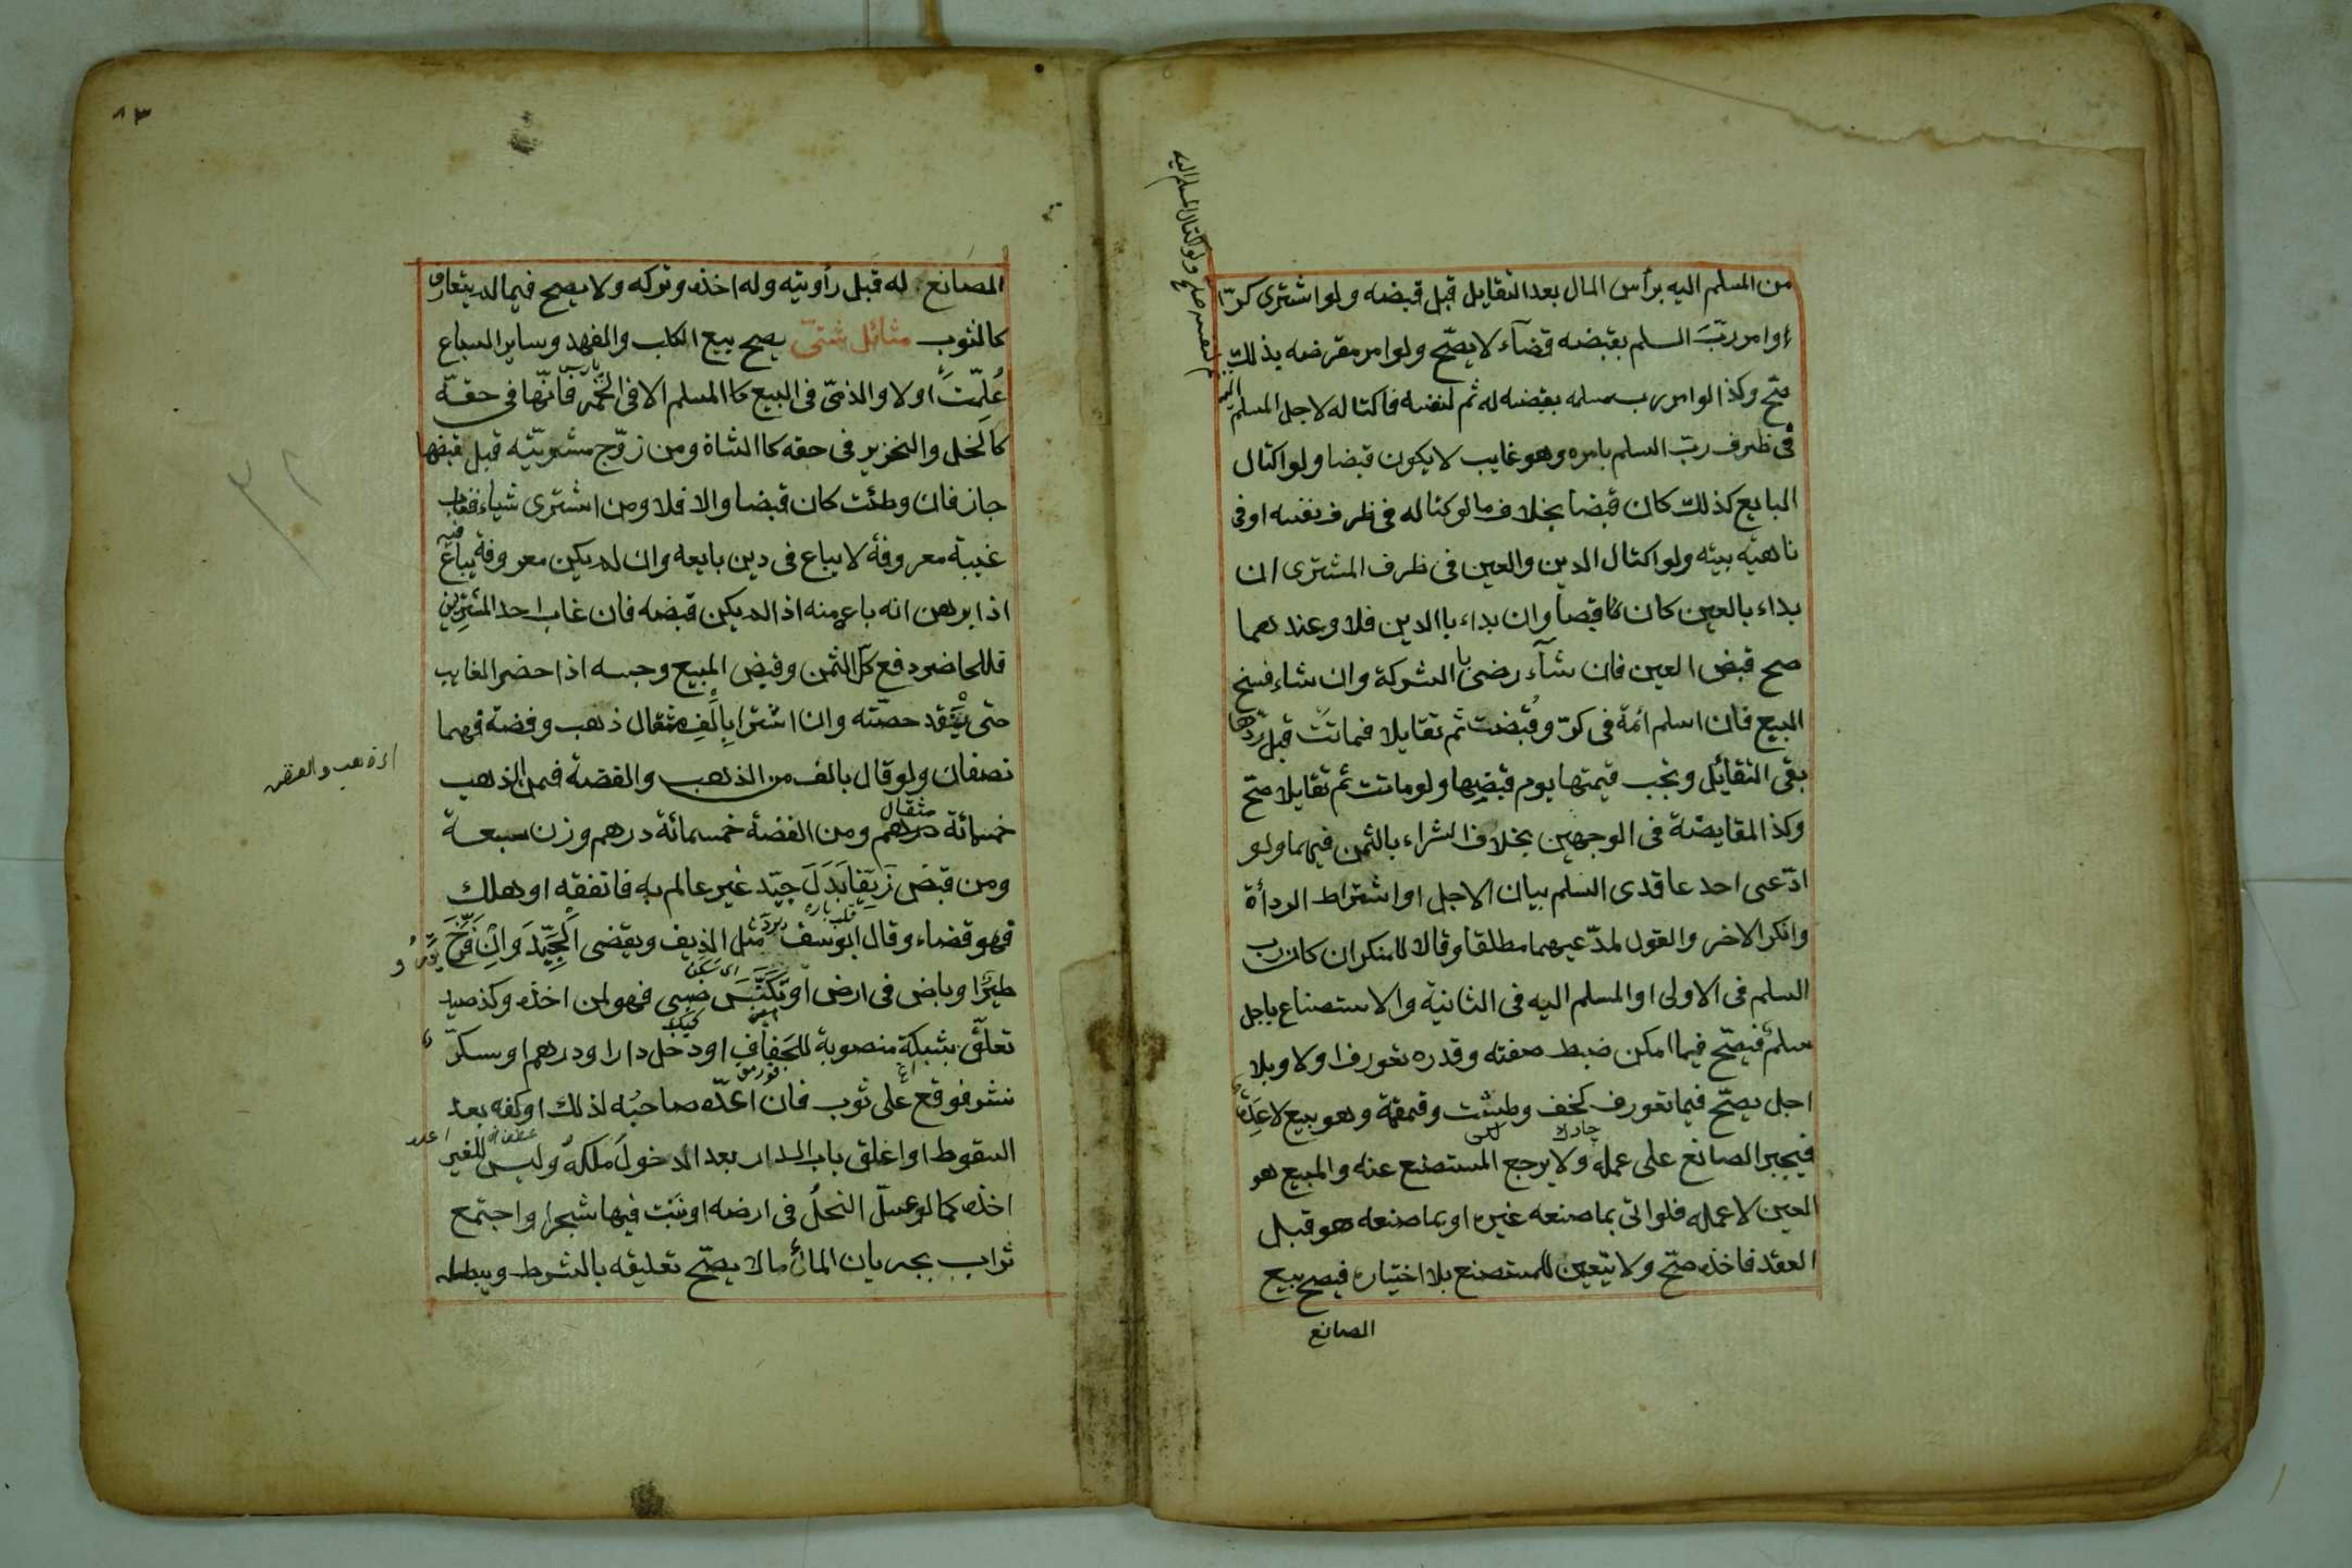 من المسلم اليه برأس المال بعد التقايل قبل قبضه ولو اشترى كرّا
وامر ربّ السلم بقبضه قضآء لا يصّح ولو امر مقرضه بذلك
صّح وكذا لو امر رب سلمه بقبضه له ثم لنفسه فاكتاله لاجل المسلم اليه
ثم لنفسه صح ولو اكتال المسلم اليه
فى ظرف ربّ السلم بامره وهو غايب لا يكون قبضا ولو اكتال
البايع كذلك كان قبضا بخلاف ما لو كتاله فى ظرف نفسه او فى
ناهيه بيته ولو اكتال الدين والعين فى ظرف المشترى ان
بداء بالعين كان قبضا وان بداء باالدين فلا وعندهما
صح قبض العين فان شآء رضى باالشركة وان شاء فسخ
البيع فان اسلم ائمة فى كرّ وقُبضت ثم تقايلا فماتت قبل ردّها
بقى التقائل وتجب قيمتها يوم قبضها ولو ماتت ثم تقايلا صّح
وكذا المقايضة فى الوجهين بخلاف الشراء بالثمن فيهما ولو
ادّعى احد عاقدى السلم بيان الاجل او اشتراط الردأة
وانكر الاخر والقول لمدّعيهما مطلقا وقالا للمنكر ان كان رب
السلم فى الاولى او المسلم اليه فى الثانية والاستصناع باجل
سلم فيصّح فيما امكن ضبط صفته وقدره تعورف اولا وبلا
اجل يصّح فيما تعورف كخف وطست وقمقمة وهو بيع لا عِدة
فيجبر الصانع على عمله ولا يرجع المستصنع عنه والمبيع هو
العين لا عمله فلو اتى بما صنعه غيره او بما صنعه هو قبل
العقد فاخذه صّح ولا يتعين للمستصنع بلا اختياره فيصح بيع
الصانع
٨٣
الصانع له قبل رأويته وله اخذه وتركه ولا يصح فيما لم يتعارف
كالثوب مثائل شتى يصح بيع الكلب والفهد وساير السباع
عُلِمّت اولا والذمّى فى البيع كاالمسلم الا فى الخمر فانّها فى حقه
كالخل والخنزير فى حقه كاالشاة ومن زوّج مشريّته قبل قبضها
جاز فان وطئت كان قبضا والا فلا ومن اشترى شياء فغاب
غيبة معروفة لا يباع فى دين بايعه وان لم يكن معروفة يباع فيه
اذا برهن انه باع منه اذا لم يكن قبضه فان غاب احد المشترِيَين
فللحاضر دفع كلّ الثمن وقبض المبيع وحبسه اذا حضر الغايب
حتى ينقد حصّته وان اشترا بِاَلْفِ مثقال ذهب وفضة فهما
نصفان ولو قال بالف من الذهب والفضة فمن الذهب
اى ذهب والفضه
خمسائة درهم مثقال ومن الفضة خمسمائة درهم وزن سبعة
ومن قبض زَيْفًا بَدَلَ جيّد غير عالم به فانفقه او هلك
فهو قضاء وقال ابو سف يردّ مثل الزيف ويقضى الْجَيِّدَ وَاِنْ فَرَّخَ
طيرٌا وباض فى ارض او تَكَنَّسَ ضبى فهو لمن اخذه وكذ صيد
تعلّق بشبكة منصوبة للجفاف او دخل دارا ودرهم او سكرّ
نثر فوقع على ثوب فان اعدّه صاحبُه لذلك او كفه بعد
السقوط او اغلق باب الدار بعد الدخول ملكهُ وليس للغير
اخذه كما لو عسّل النحلُ فى ارضه او نبَتَ فيها شجرا واجتمع
تراب بجريان المائ ما لا يصّح تعليقه بالشرط ويبطله